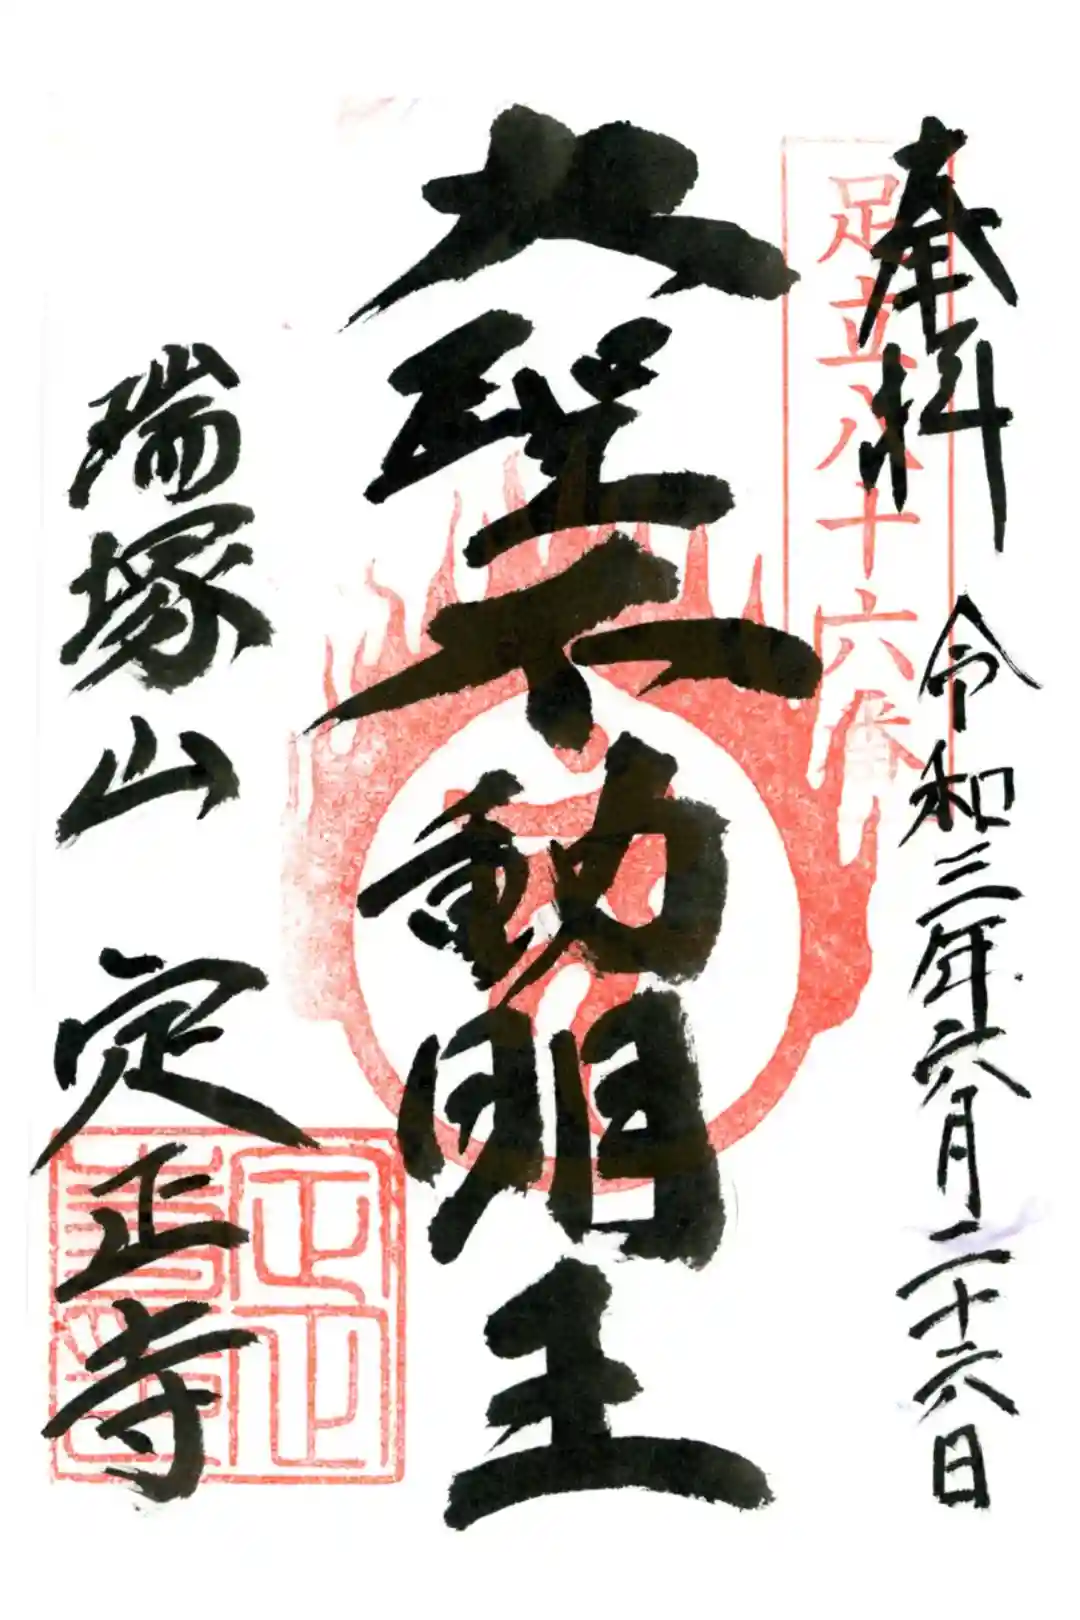 奉拝
足立八十六番
令和三年六月二十六日
大聖不動明王
瑞塚山 定正寺